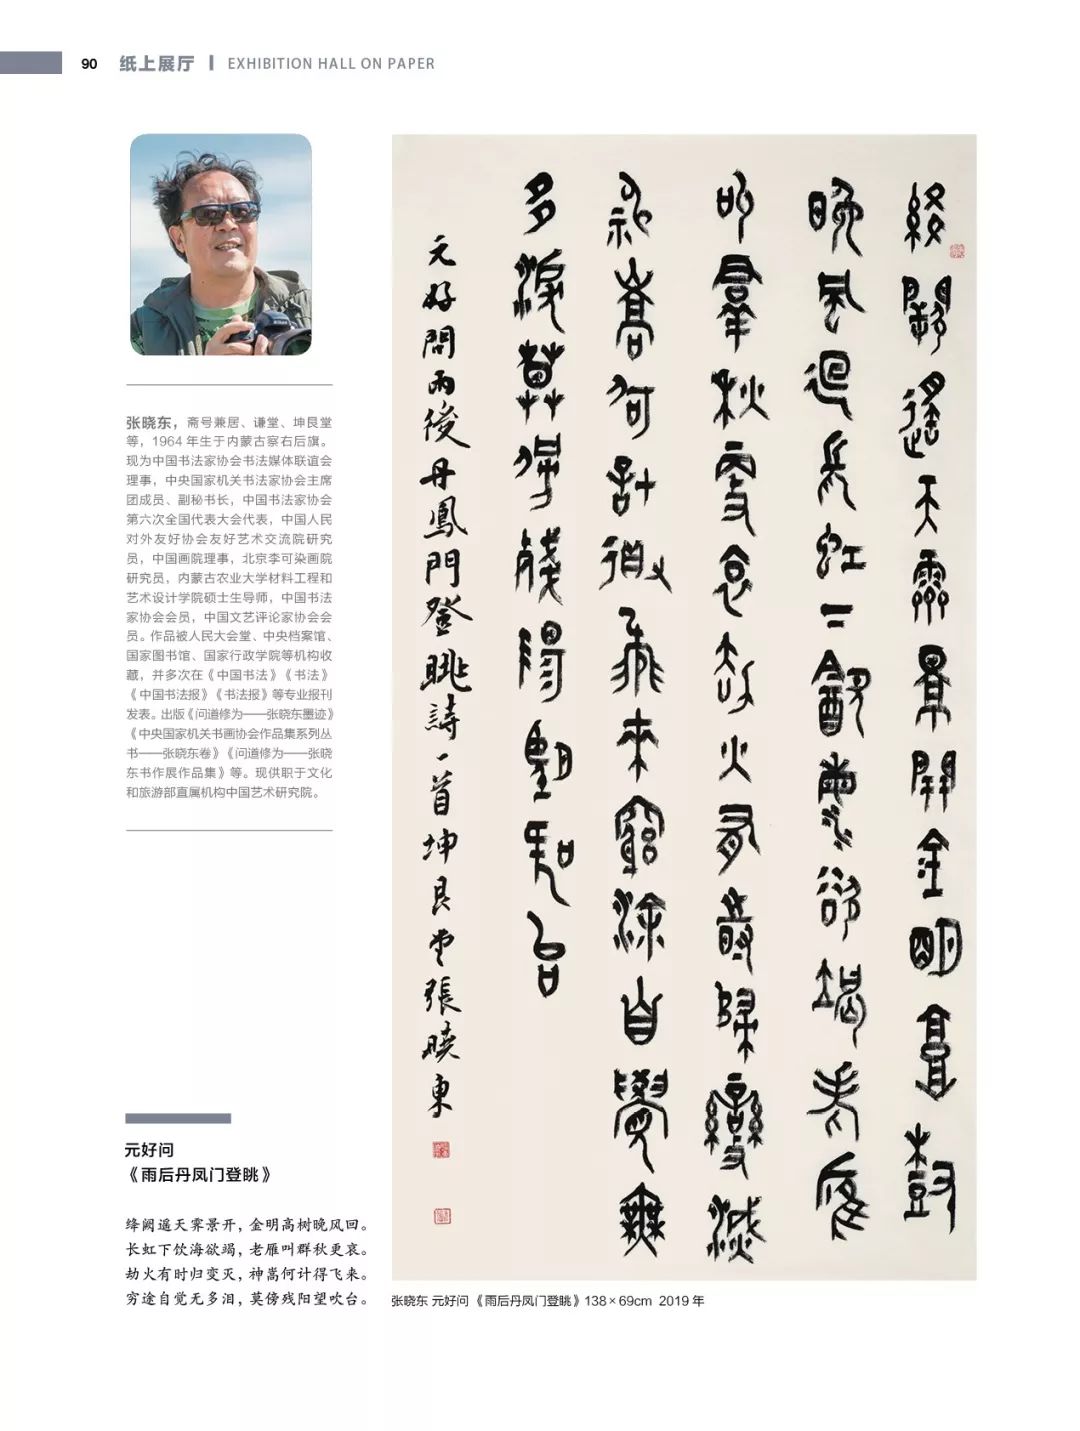 90 纸上展厅 | EXHIBITION HALL ON PAPER
张晓东，斋号兼居、谦堂、坤艮堂
等，1964 年生于内蒙古察右后旗。
现为中国书法家协会书法媒体联谊会
理事，中央国家机关书法家协会主席
团成员、副秘书长，中国书法家协会
第六次全国代表大会代表，中国人民
对外友好协会友好艺术交流院研究
员，中国画院理事，北京李可染画院
研究员，内蒙古农业大学材料工程和
艺术设计学院硕士生导师，中国书法
家协会会员，中国文艺评论家协会会
员。作品被人民大会堂、中央档案馆、
国家图书馆、国家行政学院等机构收
藏，并多次在《中国书法》《书法》
《中国书法报》《书法报》等专业报刊
发表。出版《问道修为——张晓东墨迹》
《中央国家机关书画协会作品集系列丛
书——张晓东卷》《问道修为——张晓
东书作展作品集》等。现供职于文化
和旅游部直属机构中国艺术研究院。
元好问
《雨后丹凤门登眺》
绛阙遥天霁景开，金明高树晚风回。
长虹下饮海欲竭，老雁叫群秋更哀。
劫火有时归变灭，神嵩何计得飞来。
穷途自觉无多泪，莫傍残阳望吹台。
絳闕遥天霽景開金明高樹
晚風迴長虹二飲海欲竭老雁
叫羣秋更哀劫火有時歸變滅
神嵩何計得飛來窮涂自覺無
多淚莫傍殘陽望吹台
元好問雨後丹鳳門登眺詩一首坤艮堂張曉東
张晓东 元好问《雨后丹凤门登眺》138×69cm 2019 年